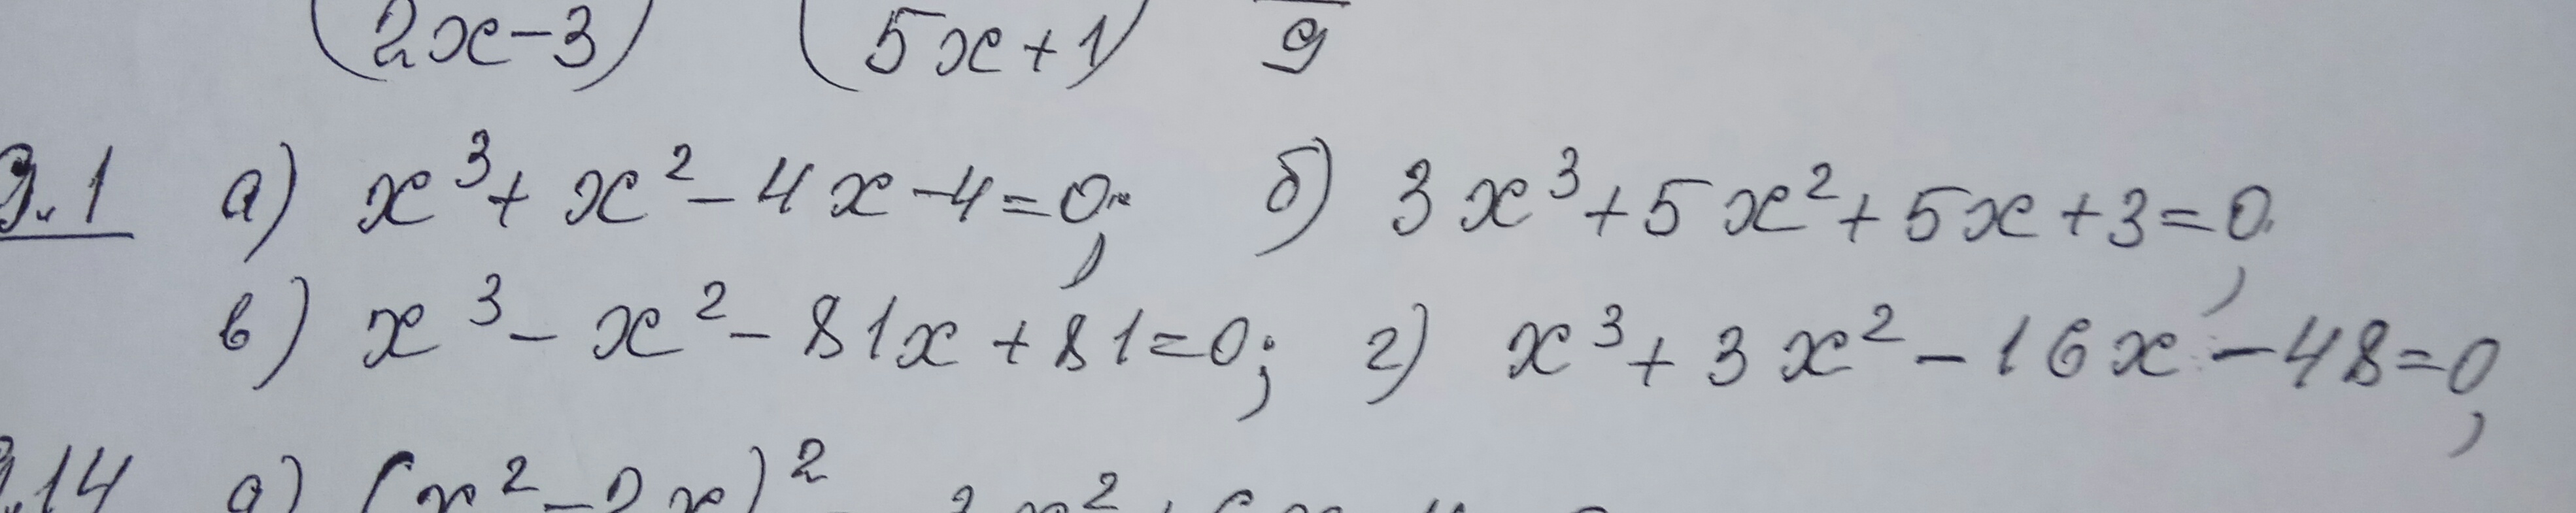 (2x-3) (5x+1) 9
9.1 а) x³+x²-4x-4=0; б) 3x³+5x²+5x+3=0,
в) x³-x²-81x+81=0; г) x³+3x²-16x-48=0,
.14 а) (x²-2x)²